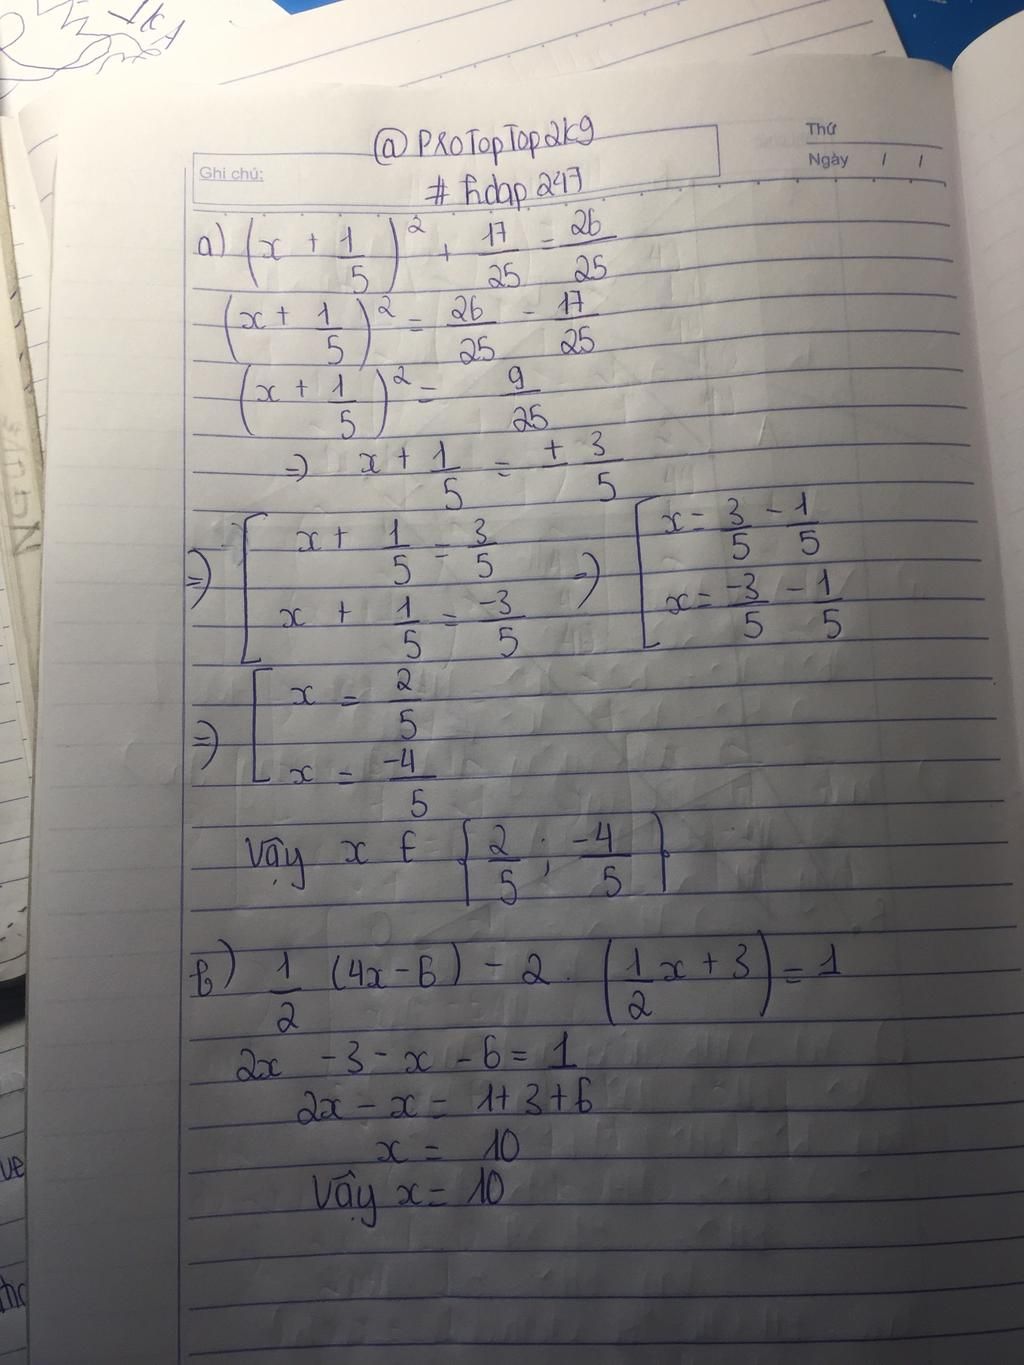 1k1
@ProTopTop2k9
Thứ
Ghi chú:
Ngày / /
# hdap 247
a) (x + 1/5)² + 17/25 = 26/25
(x + 1/5)² = 26/25 - 17/25
(x + 1/5)² = 9/25
=> x + 1/5 = ± 3/5
=> [ x + 1/5 = 3/5 => [ x = 3/5 - 1/5
x + 1/5 = -3/5 x = -3/5 - 1/5
=> [ x = 2/5
x = -4/5
Vậy x ∈ { 2/5 ; -4/5 }
b) 1/2 (4x - 6) - 2 . (1/2 x + 3) = 1
2x - 3 - x - 6 = 1
2x - x = 1 + 3 + 6
x = 10
Vậy x = 10